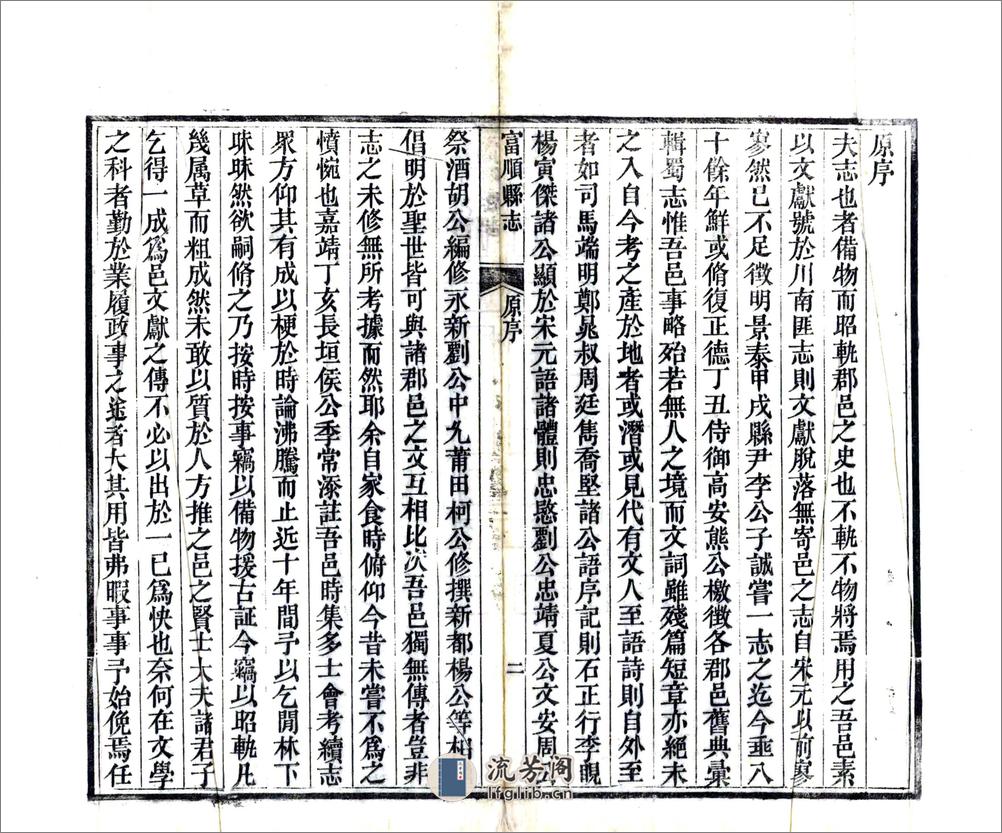 原序
夫志也者備物而昭軌郡邑之史也不軌不物將焉用之吾邑素
以文獻號於川南匪志則文獻脫落無寄邑之志自宋元以前寥
寥然已不足徵明景泰甲戌縣尹李公子誠嘗一志之迄今垂八
十餘年鮮或脩復正德丁丑侍御高安熊公檄徵各郡邑舊典彙
輯蜀志惟吾邑事略殆若無人之境而文詞雖殘篇短章亦絕未
之入自今考之產於地者或潛或見代有文人至語詩則自外至
者如司馬端明鄭晁叔周廷雋喬堅諸公語序記則石正行李覞
楊寅傑諸公顯於宋元語諸體則忠愍劉公忠靖夏公文安周
富順縣志
原序
二
祭酒胡公編修永新劉公中九莆田柯公修撰新都楊公等相
倡明於聖世皆可與諸郡邑之文互相比次吾邑獨無傳者豈非
志之未修無所考據而然耶余自家食時俯仰今昔未嘗不為之
憤惋也嘉靖丁亥長垣侯公季常添註吾邑時集多士會考續志
眾方仰其有成以梗於時論沸騰而止近十年間予以乞閒林下
昧昧然欲嗣脩之乃按時按事竊以備物援古証今竊以昭軌凡
幾属草而粗成然未敢以質於人方推之邑之賢士大夫諸君子
乞得一成爲邑文獻之傳不必以出於一已爲快也奈何在文學
之科者勤於業履政事之途者大其用皆弗暇事事予始俛焉任
流芳阁
lfglib.cn